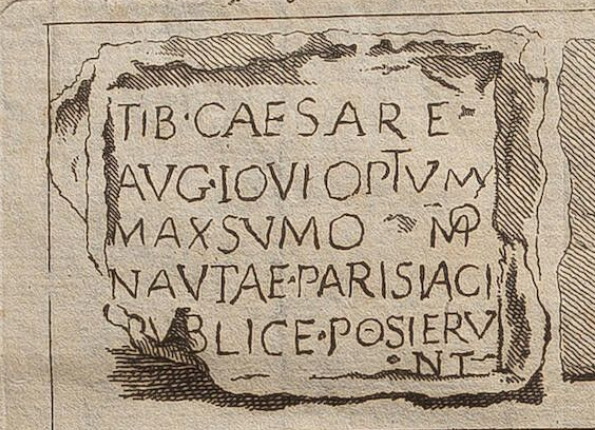 TIB·CAESARE·
AVG·IOVI OPTVM
MAXSVMO
NAVTAE·PARISIACI
PVBLICE·POSIERV
·NT